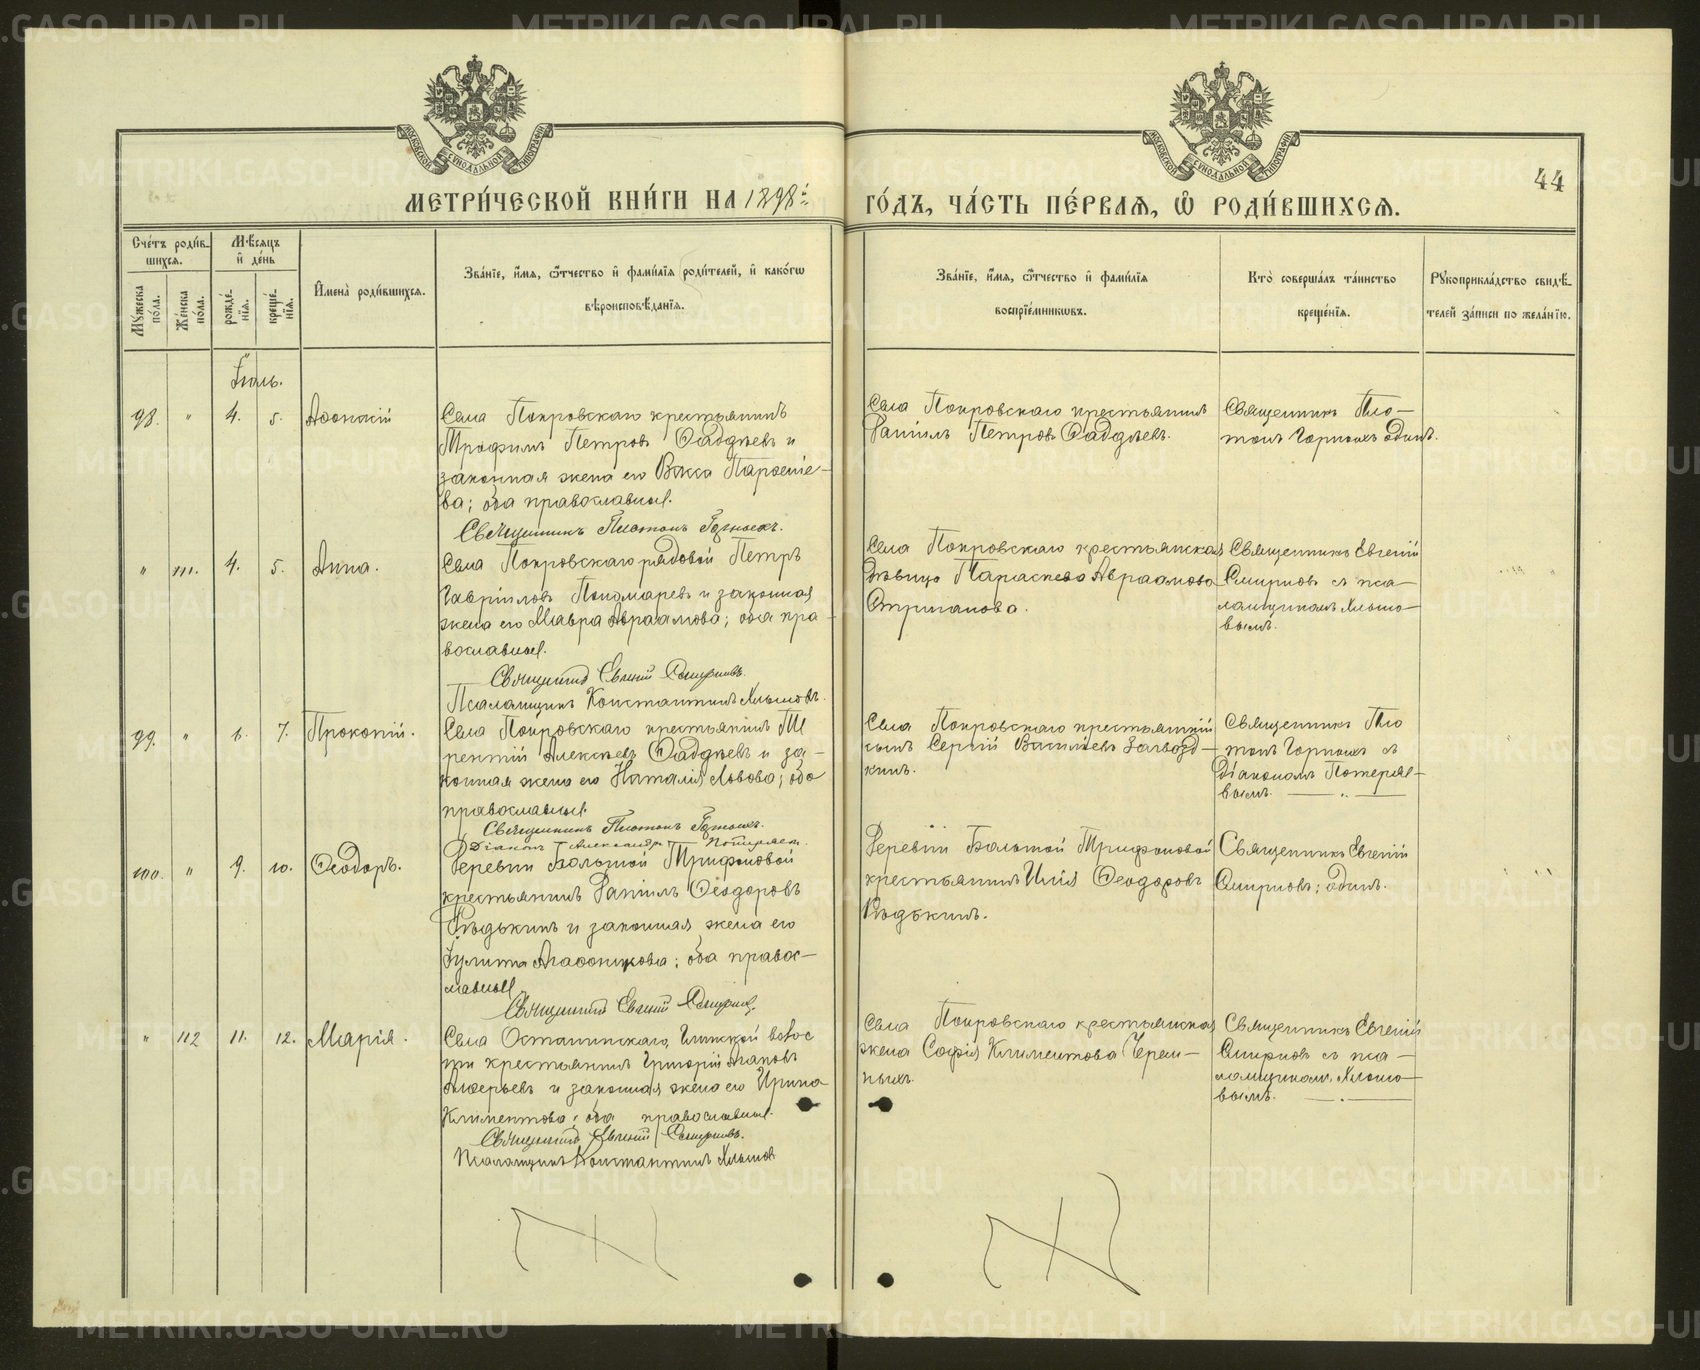 МЕТРИ́ЧЕСКОЙ КНИ́ГИ НА 1898й
ГО́ДЪ, ЧА́СТЬ ПЕ́РВАѦ, Ѡ҆ РОДИ́ВШИХСѦ.
44
Сче́тъ роди́в-
шихсѧ.
Мѣ́сѧцъ
и҆ де́нь
И҆мена̀ роди́вшихсѧ.
Зва́нїе, и҆́мѧ, ѻ҆́тчество и҆ фами́лїѧ роди́телей, и҆ како́гѡ
вѣроисповѣ́данїѧ.
Мꙋжеска
по́ла.
Же́нска
по́ла.
рожде́-
нїѧ.
креще́-
нїѧ.
Зва́нїе, и҆́мѧ, ѻ҆́тчество и҆ фами́лїѧ
воспрїе́мникѡвъ.
Кто̀ соверша́лъ та́инство
креще́нїѧ.
Рꙋкоприкла́дство свидѣ́-
телей за́писи по жела́нїю.
Іюль.
98. " 4. 5. Аѳонасій
Села Покровскаго крестьянинъ
Трофимъ Петровъ Ѳаддѣевъ и
законная жена его Васса Парѳеніе-
ва; оба православныя.
Священникъ Платонъ Горныхъ.
Села Покровскаго крестьянинъ
Даніилъ Петровъ Ѳаддѣевъ.
Священникъ Пла-
тонъ Горныхъ одинъ.
" 111. 4. 5. Анна.
Села Покровскаго рядовой Петръ
Гавріиловъ Пономаревъ и законная
жена его Мавра Авраамова; оба пра-
вославныя.
Священникъ Евгеній Смирновъ.
Псаломщикъ Константинъ Хлыновъ.
Села Покровскаго крестьянская
дѣвица Параскева Авраамова
Стриганова.
Священникъ Евгеній
Смирновъ съ пса-
ломщикомъ Хлыно-
вымъ.
99. " 6. 7. Прокопій.
Села Покровскаго крестьянинъ Те
рентій Алексѣевъ Ѳаддѣевъ и за-
конная жена его Наталія Львова; оба
православныя.
Священникъ Платонъ Горныхъ.
Діаконъ Александръ Потеряев.
Села Покровскаго крестьянскій
сынъ Сергій Васильевъ Загвозд-
кинъ.
Священникъ Пла
тонъ Горныхъ съ
діакономъ Потеряе-
вымъ.
100. " 9. 10. Ѳеодоръ.
Деревни Большой Трифоновой
крестьянинъ Даніилъ Ѳеодоровъ
Рѣдькинъ и законная жена его
Іулита Агаѳоникова; оба правос-
лавныя
Священникъ Евгеній Смирнов.
Деревни Большой Трифоновой
крестьянинъ Илія Ѳеодоровъ
Рѣдькинъ.
Священникъ Евгеній
Смирновъ; одинъ.
" 112 11. 12. Марія.
Села Останинскаго, Глинской волос
ти крестьянинъ Григорій
и законная жена его Ирина
Климентова; оба православныя.
Священникъ Евгеній Смирновъ.
Псаломщикъ Константинъ Хлынов
Села Покровскаго крестьянская
жена Софія Климентова Черем-
ныхъ.
Священникъ Евгеній
Смирновъ съ пса-
ломщикомъ Хлыно-
вымъ.